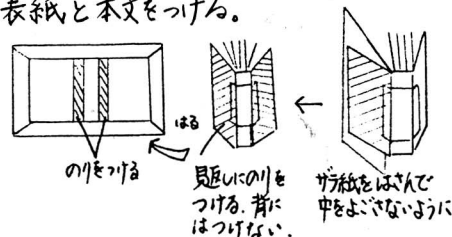 表紙と本文をつける。
はる
のりをつける
見返しにのりを
つける。背に
はつけない。
ザラ紙をはさんで
中をよごさないように